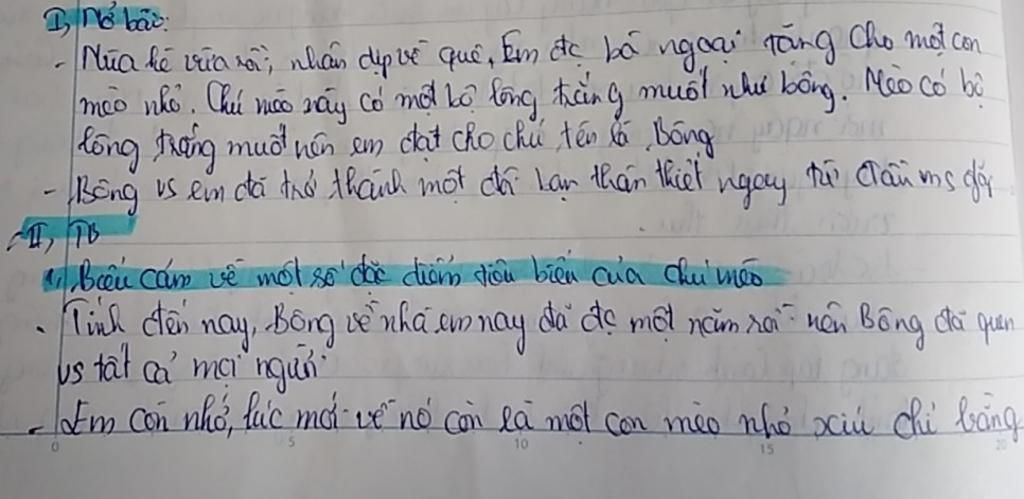 I, Mở bài:
- Mùa hè vừa rồi, nhân dịp về quê, Em đc bà ngoại tặng cho một con
mèo nhỏ. Chú mèo này có một bộ lông trắng muốt như bông. Mèo có bộ
lông trắng muốt nên em đặt cho chú tên là Bông
- Bông vs em đã trở thành một đôi bạn thân thiết ngay từ đầu ms gặp
II, TB
1, Biểu cảm về một số đặc điểm tiêu biểu của chú mèo
- Tính đến nay, Bông về nhà em nay đã đc một năm rồi nên Bông đã quen
vs tất cả mọi người
- Em còn nhớ, lúc mới về nó còn là một con mèo nhỏ xíu chỉ bằng
0 5 10 15 20